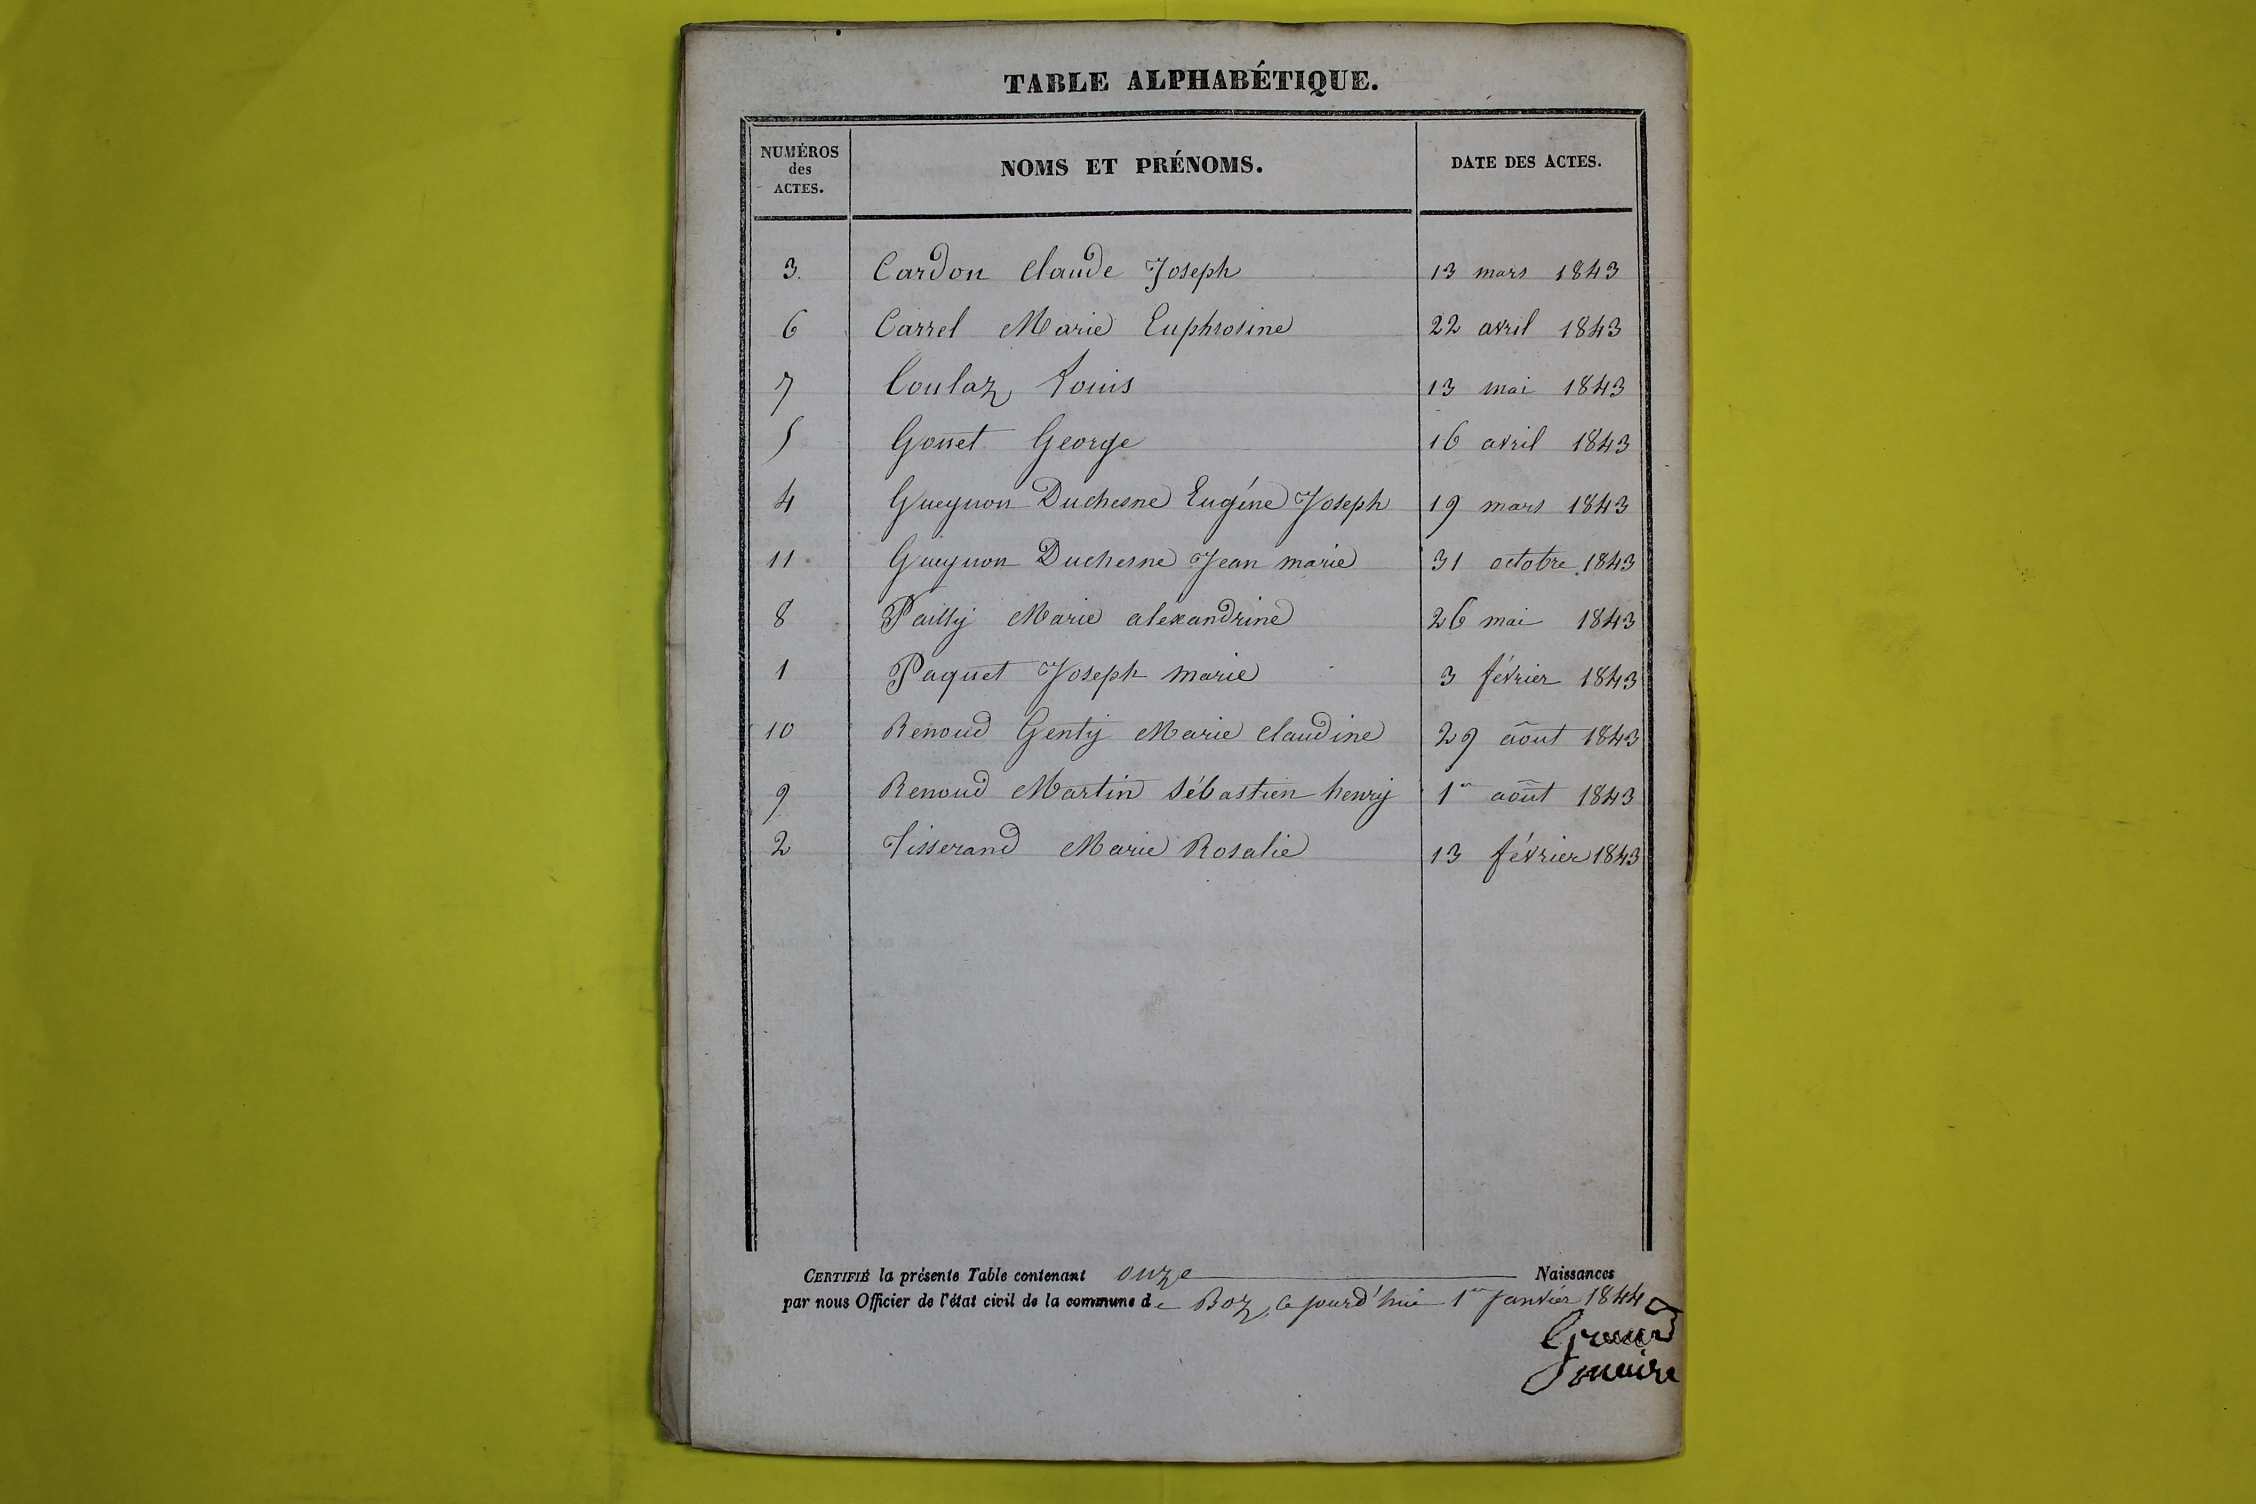 TABLE ALPHABÉTIQUE.
NUMÉROS des ACTES. NOMS ET PRÉNOMS. DATE DES ACTES.
3. Cardon Claude Joseph 13 mars 1843
6 Carrel Marie Euphrosine 22 avril 1843
7 Coulaz Louis 13 mai 1843
5 Gonet George 16 avril 1843
4 Gueguon Duchesne Eugéne Joseph 19 mars 1843
11 Gueguon Duchesne Jean marie 31 octobre 1843
8 Pailly Marie alexandrine 26 mai 1843
1 Paquet Joseph marie 3 février 1843
10 Renoud Genty Marie Claudine 29 âout 1843
9 Renoud Martin Sébastien henry 1er août 1843
2 Tisserand Marie Rosalie 13 février 1843
CERTIFIÉ la présente Table contenant onze Naissances
par nous Officier de l'état civil de la commune de Boz, ce jourd'hui 1er Janvier 1844
maire